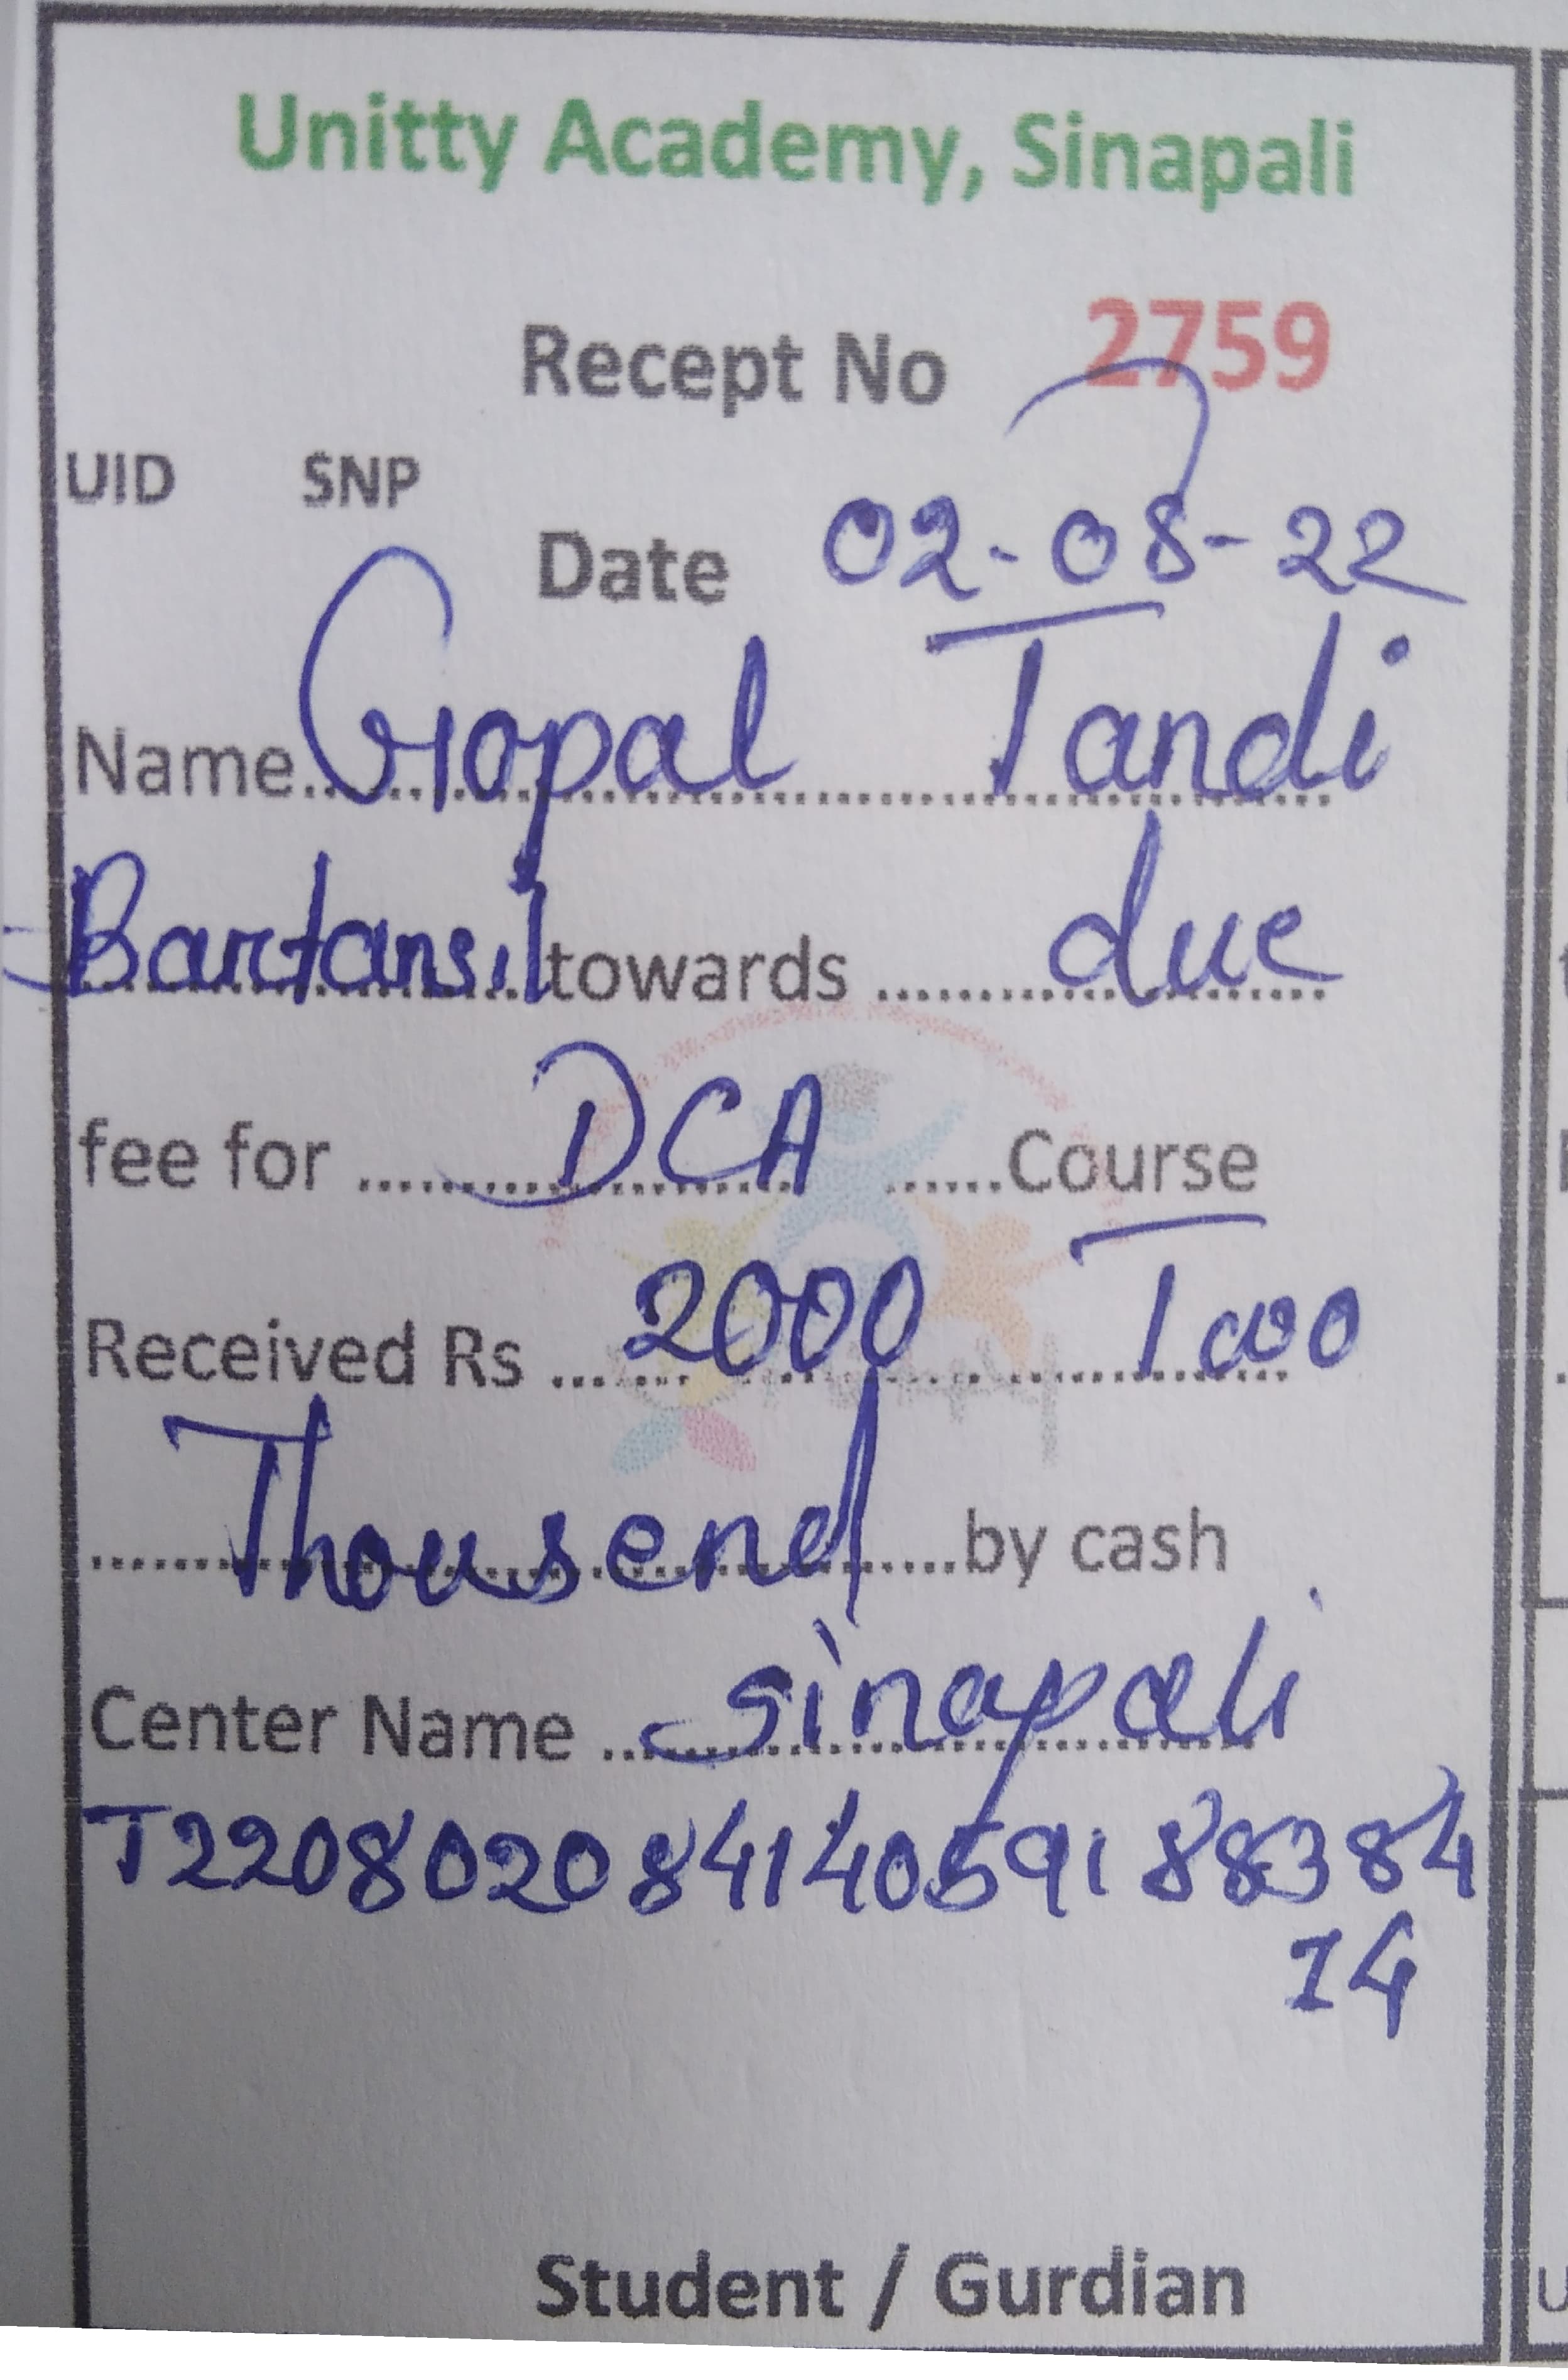 Unitty Academy, Sinapali
Recept No 2759
UID SNP
Date 02-08-22
Name Gopal Tandi
Bartansil towards due
fee for DCA Course
Received Rs 2000 Two
Thousend by cash
Center Name Sinapali
T22080208414059188384
14
Student / Gurdian